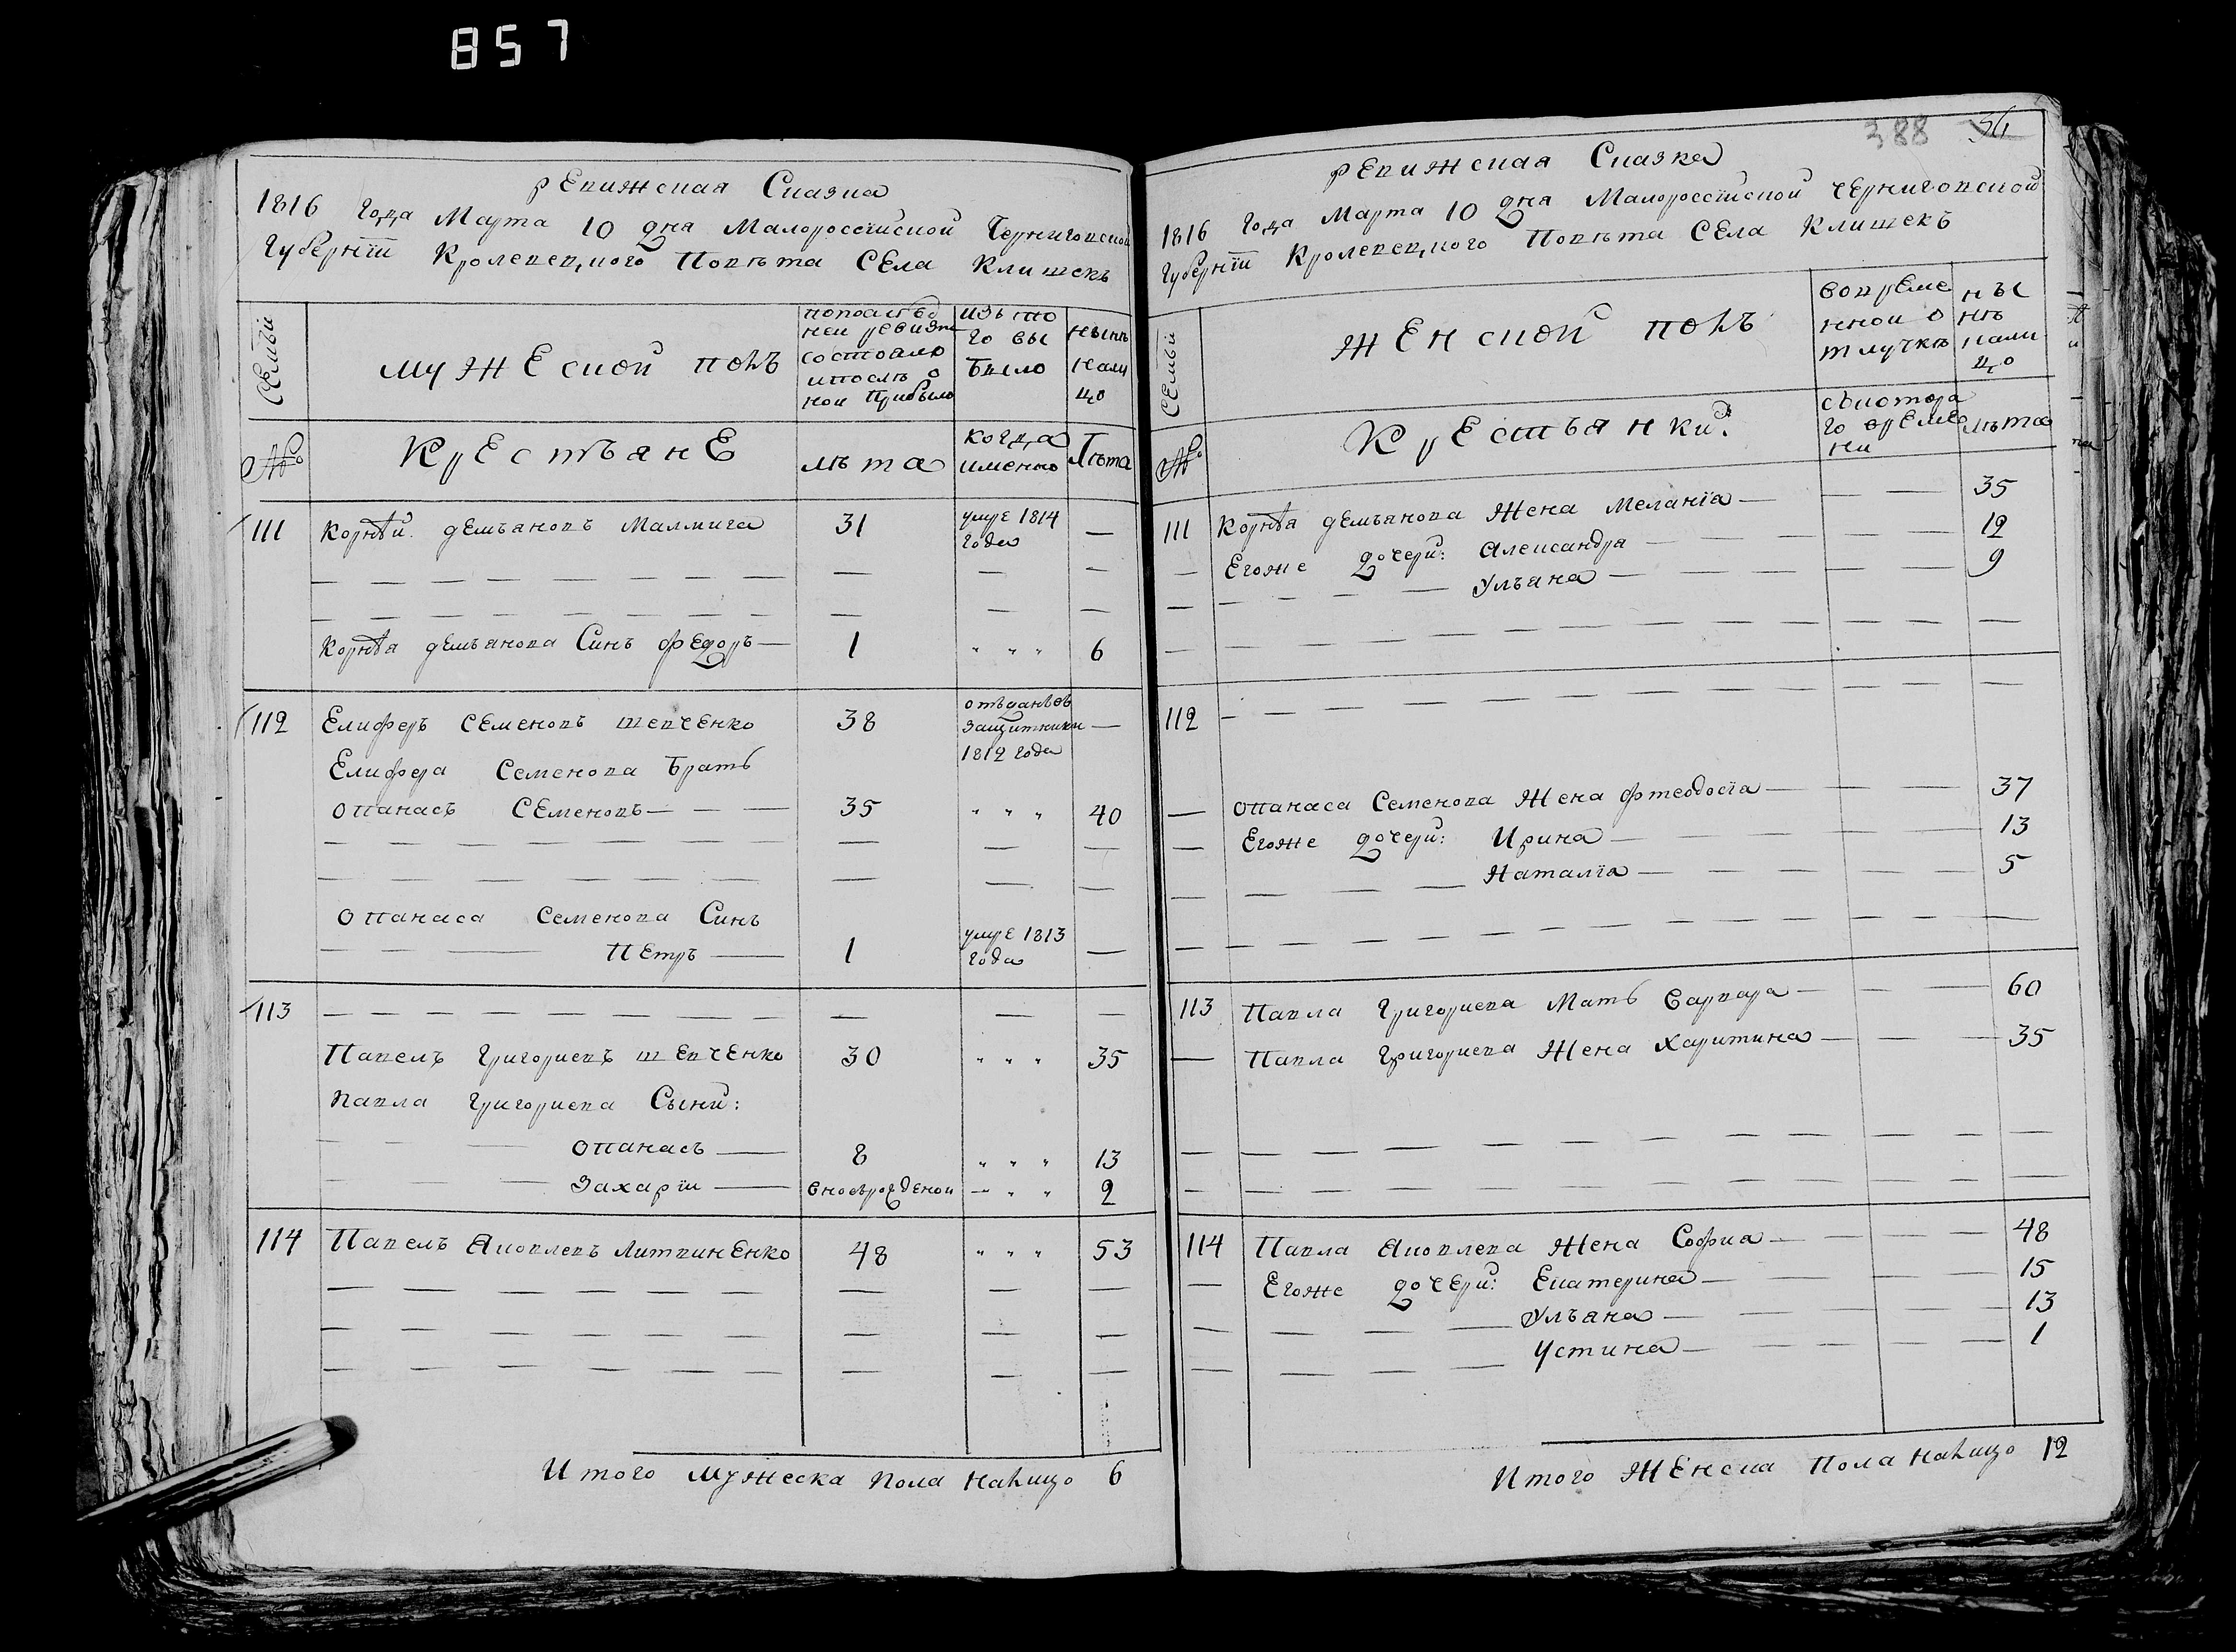 857
Ревижская Сказка
1816 года Марта 10 дня Малороссїйской Черниговской
Губернїи Кролевецкого Повѣта Села Клишекъ
Семьи
мужеской полъ
попослѣд
ней ревизи
состояло
ипослѣ о
ной прибыло
изъ то
го вы
было
нынѣ
нали
цо
№
Крестьяне
лѣта
когда
именно
Лѣта
111 Корнѣй демьяновъ Малмига 31 умре 1814 —
года
Корнѣя демьянова Синъ федоръ — 1 " " " 6
112 Елиферъ Семеновъ шевченко 38 отъданъ въ
защитники —
1812 года
Елифера Семенова братъ
Опанасъ Семеновъ — 35 " " " 40
Опанаса Семенова Синъ
Петръ — 1 умре 1813 —
года
113
Павелъ Григориевъ шевченко 30 " " " 35
Павла Григориева Сыни:
Опанасъ — 8 " " " 13
Захарїи — вновърожденой — " " 2
114 Павелъ Яковлевъ Литвиненко 48 " " " 53
Итого мужеска пола налицо 6
388 56
Ревижская Сказка
1816 года Марта 10 дня Малороссїйской Черниговской
Губернїи Кролевецкого Повѣта Села Клишекъ
Семьи
женской полъ
вовреме
нной о
тлучкѣ
ны
нѣ
нали
цо
№
Крестьянки:
съкотора
го време
ни
лѣта
111 Корнѣя демьянова Жена Меланїа — 35
Егоже дочери: Александра — 12
Ульяна — 9
112
Опанаса Семенова Жена фтеодосїа — 37
Егоже дочери: Ирина — 13
Наталїа — 5
113 Павла Григориева Мать Варвара — 60
Павла Григориева Жена Харитина — 35
114 Павла Яковлева Жена Софиа — 48
Егоже дочери: Екатерина — 15
Ульяна — 13
Устина — 1
Итого Женска Пола налицо 12